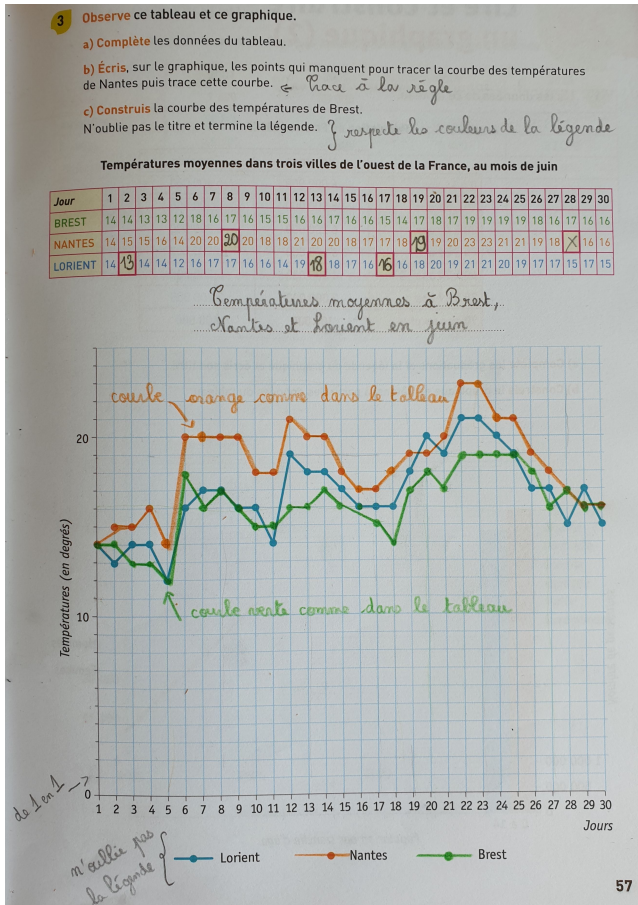 3 Observe ce tableau et ce graphique.
a) Complète les données du tableau.
b) Écris, sur le graphique, les points qui manquent pour tracer la courbe des températures
de Nantes puis trace cette courbe. ← Trace à la règle
c) Construis la courbe des températures de Brest.
N'oublie pas le titre et termine la légende. } respecte les couleurs de la légende
Températures moyennes dans trois villes de l'ouest de la France, au mois de juin
Jour 1 2 3 4 5 6 7 8 9 10 11 12 13 14 15 16 17 18 19 20 21 22 23 24 25 26 27 28 29 30
BREST 14 14 13 13 12 18 16 17 16 15 15 16 16 17 16 16 15 14 17 18 17 19 19 19 19 18 16 17 16 16
NANTES 14 15 15 16 14 20 20 20 20 18 18 21 20 20 18 17 17 18 19 19 20 23 23 21 21 19 18 X 16 16
LORIENT 14 13 14 14 12 16 17 17 16 16 14 19 18 18 17 16 16 16 18 20 19 21 21 20 19 17 17 15 17 15
Températures moyennes à Brest,
Nantes et Lorient en juin
courbe orange comme dans le tableau
20
Températures (en degrés)
10
courbe verte comme dans le tableau
de 1 en 1
0
1 2 3 4 5 6 7 8 9 10 11 12 13 14 15 16 17 18 19 20 21 22 23 24 25 26 27 28 29 30
Jours
n'oublie pas
la légende
Lorient Nantes Brest
57